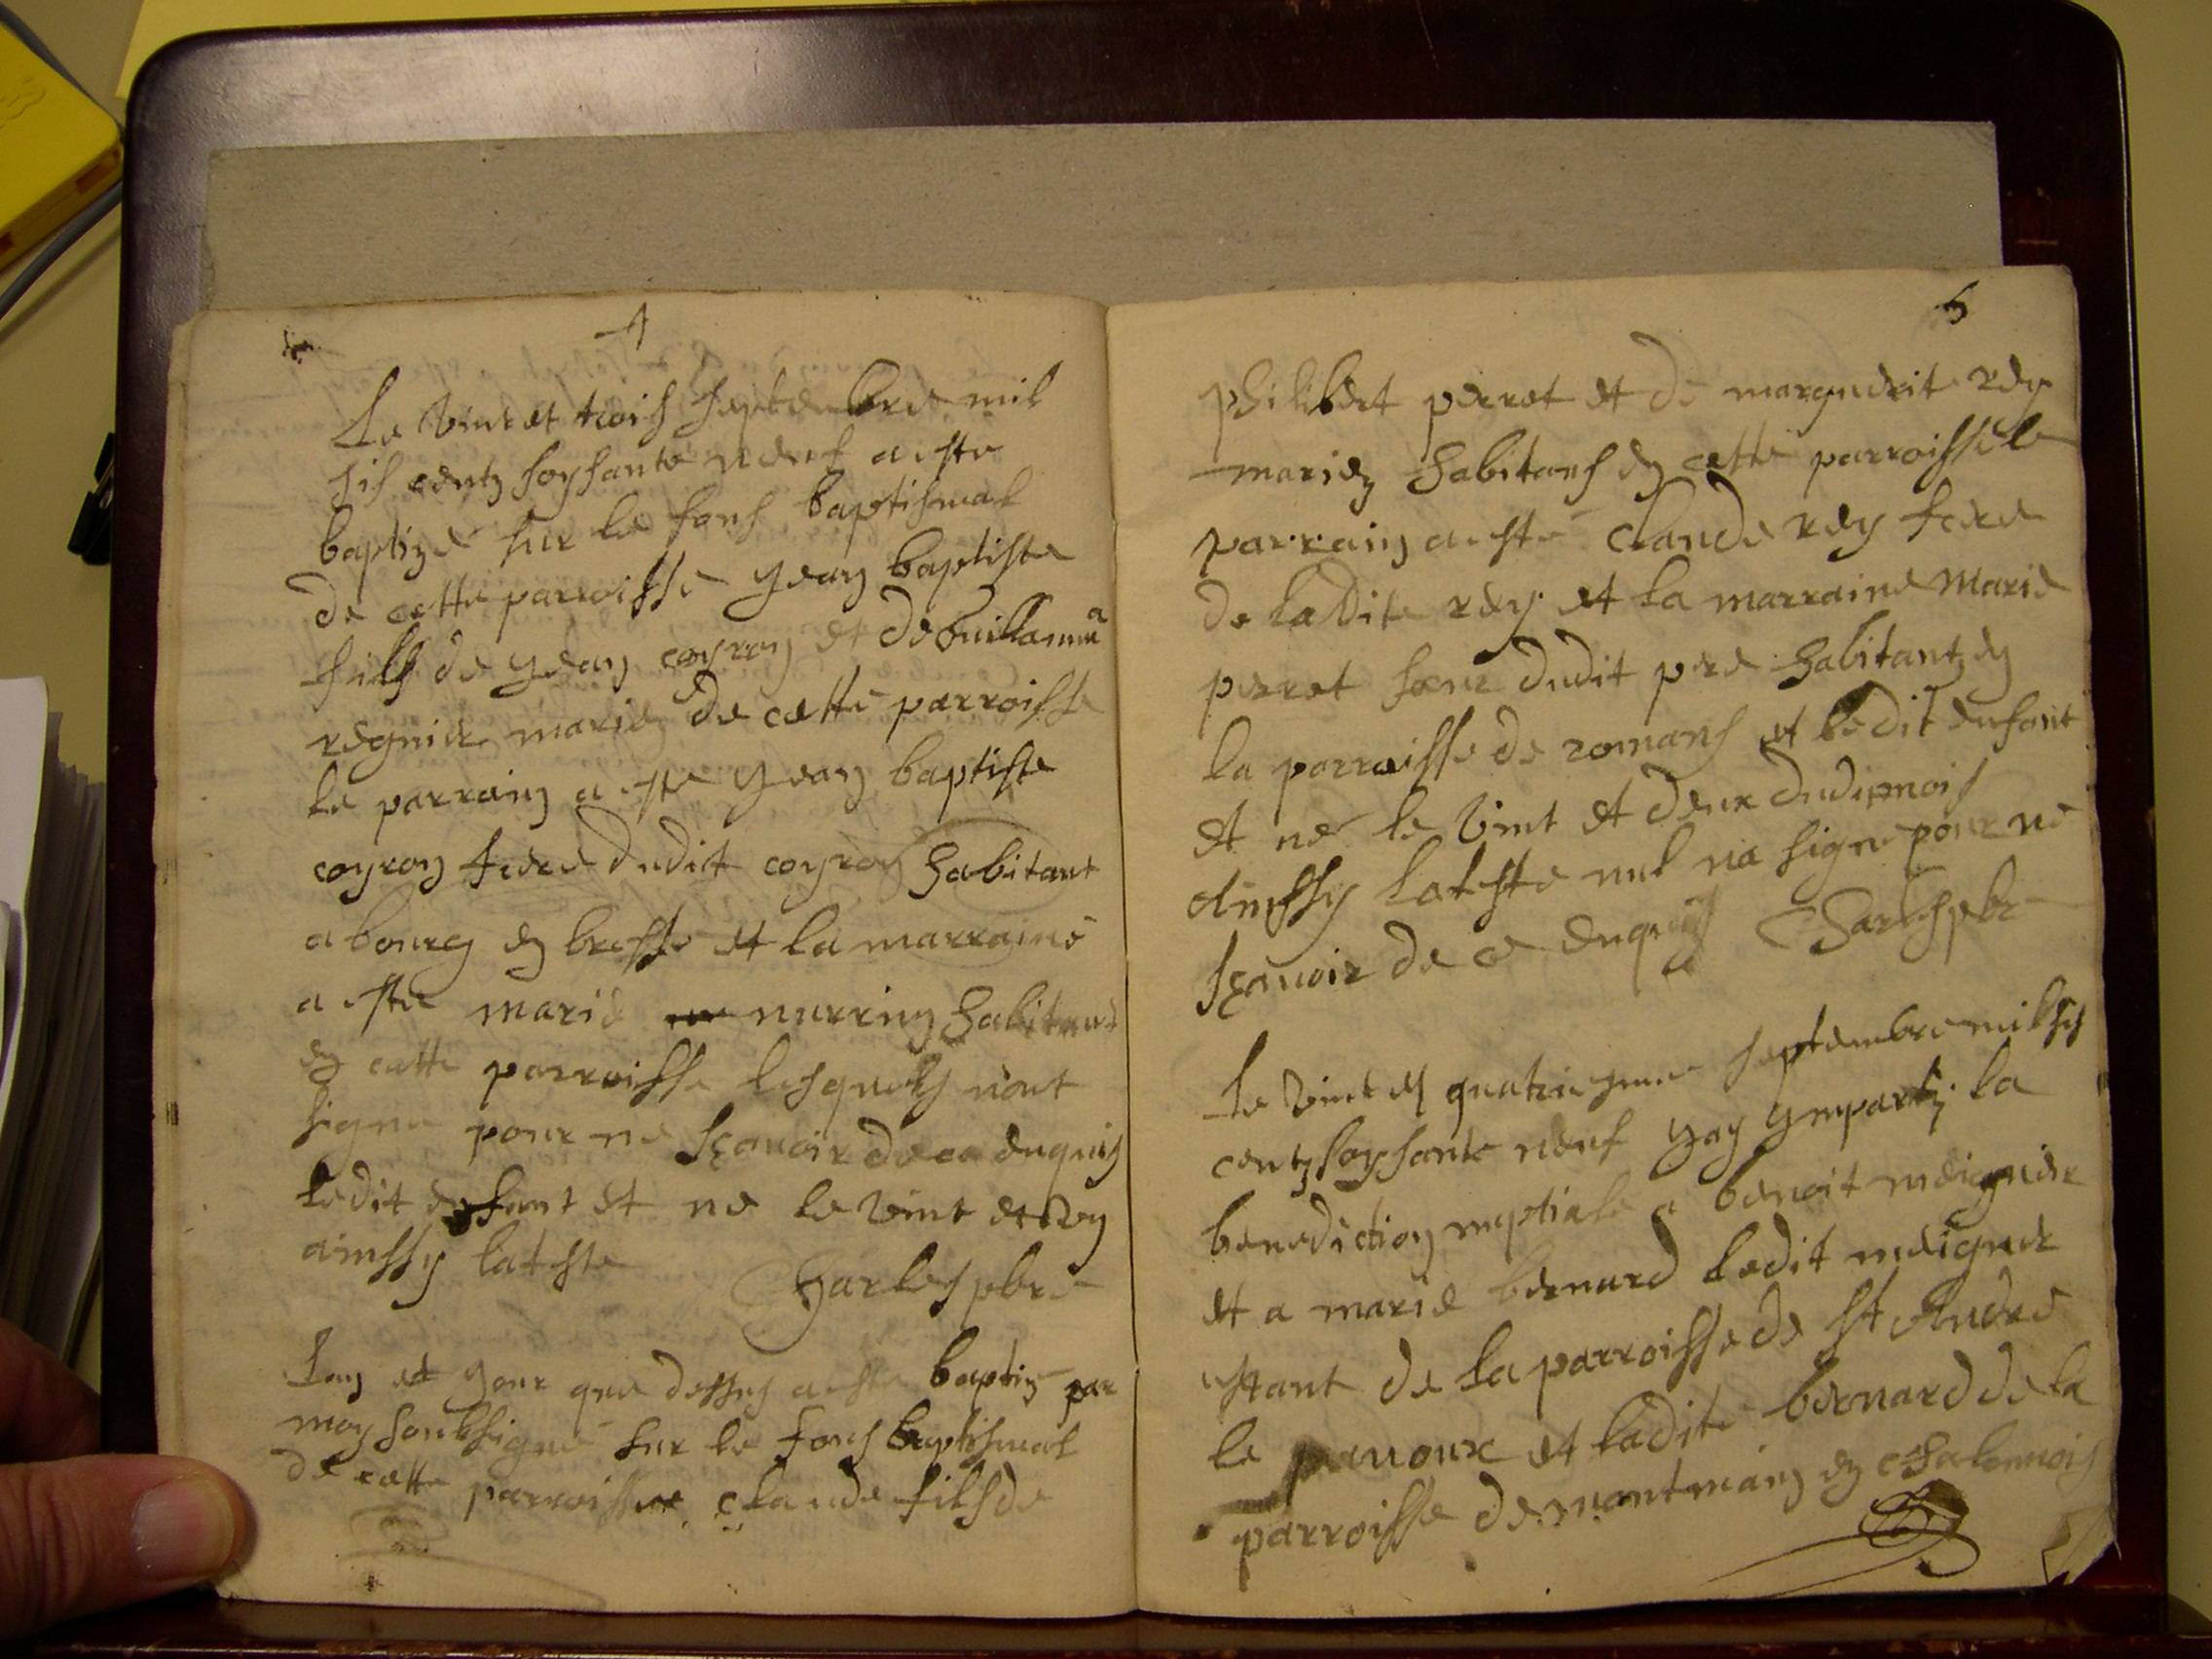 4
Le vint et trois septembre mil
sis centz soysante neuf a este
baptize sur le fons baptismal
de cette parroisse yean baptiste
fils de yean coyron et de guillauma
regnier mariez de cette parroisse
le parrain a este yean baptiste
coyron frere dudit coyron habitant
a bourg en bresse et la marraine
a este marie nurrin habitant
en cette parroisse lesquels nont
signe pour ne scavoir de ce enquis
ledit enfant et ne le vint et un
ainssy latste
Charles pbre
Lan et your que dessus a este baptize par
moy soubsigne sur le fons baptismal
de cette parroisse claude fils de
5
philibert perret et de marguerit rey
mariez habitans en cette parroisse le
parrain a este claude rey frere
de ladite rey et la marraine marie
perret soeur dudit pere habitantz en
la parroisse de romans et ledit enfant
et ne le vint et deux dudit mois
ainssy latste nul na signe pour ne
scavoir de ce enquis Charles pbre
Le vint et quatriesme septembre mil sis
centz soysante neuf yay ymparty la
benediction nuptiale a benoit meignier
et a marie bernard ledit meignier
estant de la parroisse de st Andre
le panoux et ladite bernard de la
parroisse de montmain en chalonnois